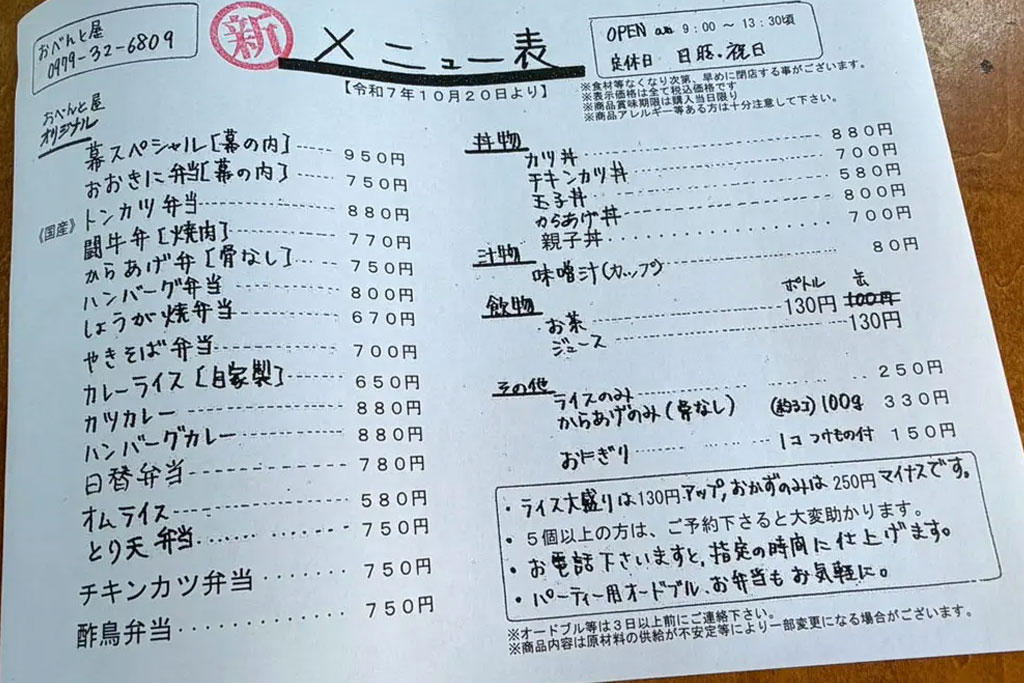 おべんと屋
0979-32-6809
新
メニュー表
【令和7年10月20日より】
OPEN a.m 9:00 ~ 13:30頃
定休日 日曜・祝日
※食材等なくなり次第、早めに閉店する事がございます。
※表示価格は全て税込価格です
※商品賞味期限は購入当日限り
※商品アレルギー等ある方は十分注意して下さい。
おべんと屋
オリジナル
幕スペシャル[幕の内] 950円
おおきに弁当[幕の内] 750円
《国産》トンカツ弁当 880円
闘牛弁[焼肉] 770円
からあげ弁[骨なし] 750円
ハンバーグ弁当 800円
しょうが焼弁当 670円
やきそば弁当 700円
カレーライス[自家製] 650円
カツカレー 880円
ハンバーグカレー 880円
日替弁当 780円
オムライス 580円
とり天弁当 750円
チキンカツ弁当 750円
酢鳥弁当 750円
丼物
カツ丼 880円
チキンカツ丼 700円
玉子丼 580円
からあげ丼 800円
親子丼 700円
汁物
味噌汁(カップ) 80円
飲物
ボトル 缶
お茶 130円 100円
ジュース 130円
その他
ライスのみ 250円
からあげのみ(骨なし) (約3コ)100g 330円
おにぎり 1コ つけもの付 150円
・ライス大盛りは130円アップ,おかずのみは250円マイナスです。
・5個以上の方は、ご予約下さると大変助かります。
・お電話下さいますと,指定の時間に仕上げます。
・パーティー用オードブル.お弁当もお気軽に。
※オードブル等は3日以上前にご連絡下さい。
※商品内容は原材料の供給が不安定等により一部変更になる場合がございます。